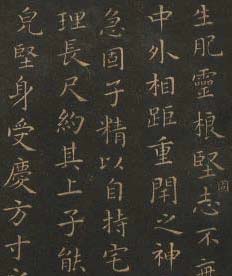 生肥靈根堅志不衰
中外相距重閇之神
急固子精以自持宅
理長尺約其上子能
兒堅身受慶方寸